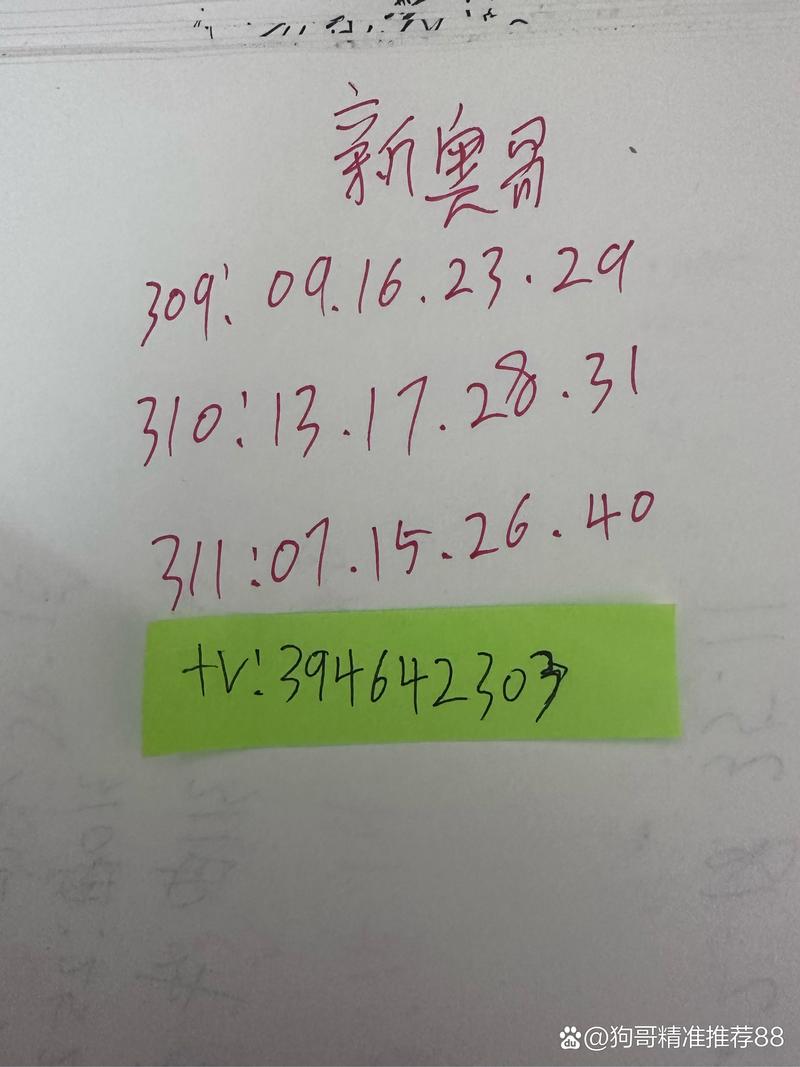 新奥哥
309: 09.16.23.29
310:13.17.28.31
311:07.15.26.40
+V:394642303
@狗哥精准推荐88